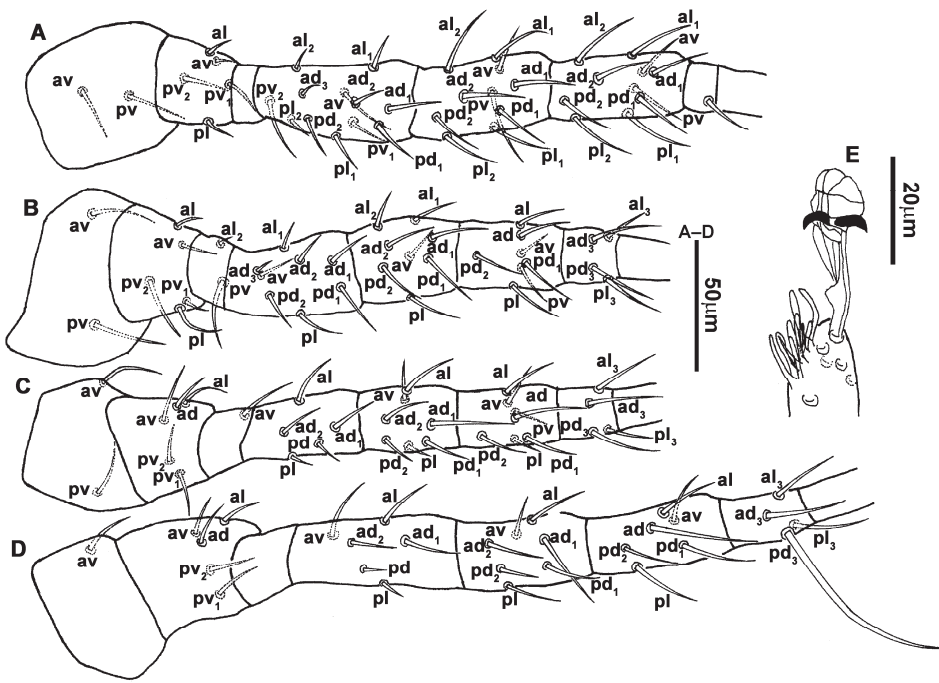 A
al
av
av
pv
pv2
pv1
pl
al2
al1
ad3
ad2
av
ad1
pv2
pl2
pd2
pv1
pl1
pd1
al2
al1
ad2
av
ad1
pv
pd2
pd1
pl2
pl1
al2
al1
av
ad2
ad1
pd2
pd1
pv
pl2
pl1
B
av
al
av
al2
pv2
pv1
pv
pl
al1
ad3
av
ad2
ad1
pv
pd2
pd1
pl
al2
al1
ad2
ad1
av
pd2
pd1
pl
al
ad
av
pd2
pd1
pv
pl
al3
ad3
pd3
pl3
A–D
50μm
E
20μm
C
av
av
al
ad
pv2
pv1
pv
av
al
ad2
ad1
pd
pl
al
av
ad2
ad1
pd2
pl
pd1
al
av
ad
pv
pd2
pl
pd1
al3
ad3
pd3
pl3
D
av
av
al
ad
pv2
pv1
av
al
ad2
ad1
pd
pl
av
al
ad2
ad1
pd2
pd1
pl
al
av
ad
pd2
pd1
pl
al3
ad3
pl3
pd3